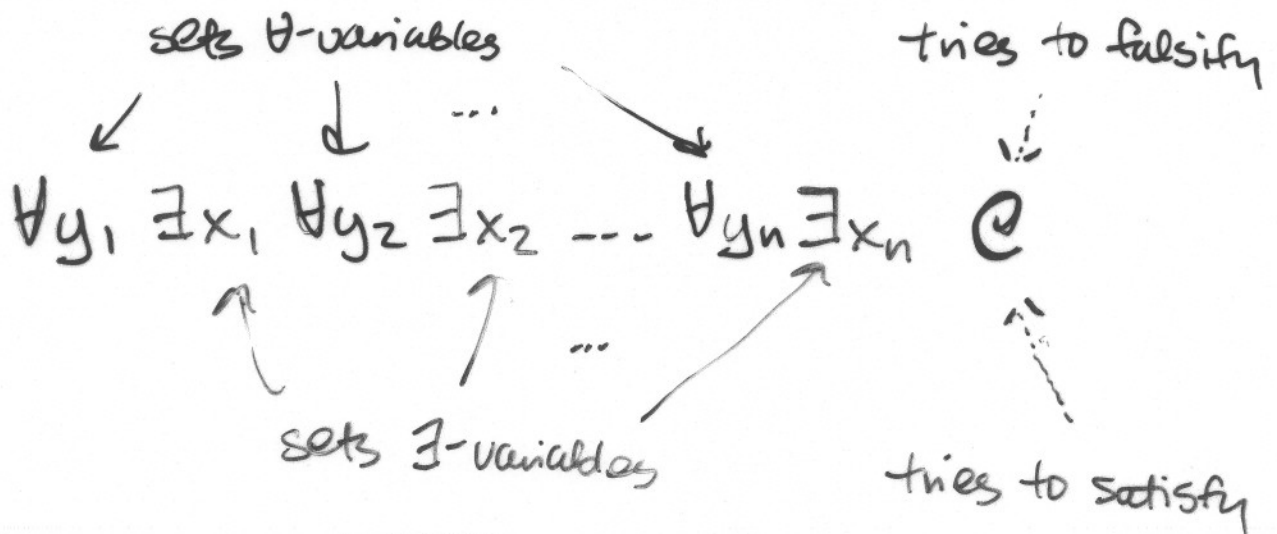 sets ∀-variables
tries to falsify
...
∀y₁ ∃x₁ ∀y₂ ∃x₂ --- ∀yₙ ∃xₙ C
...
sets ∃-variables
tries to satisfy